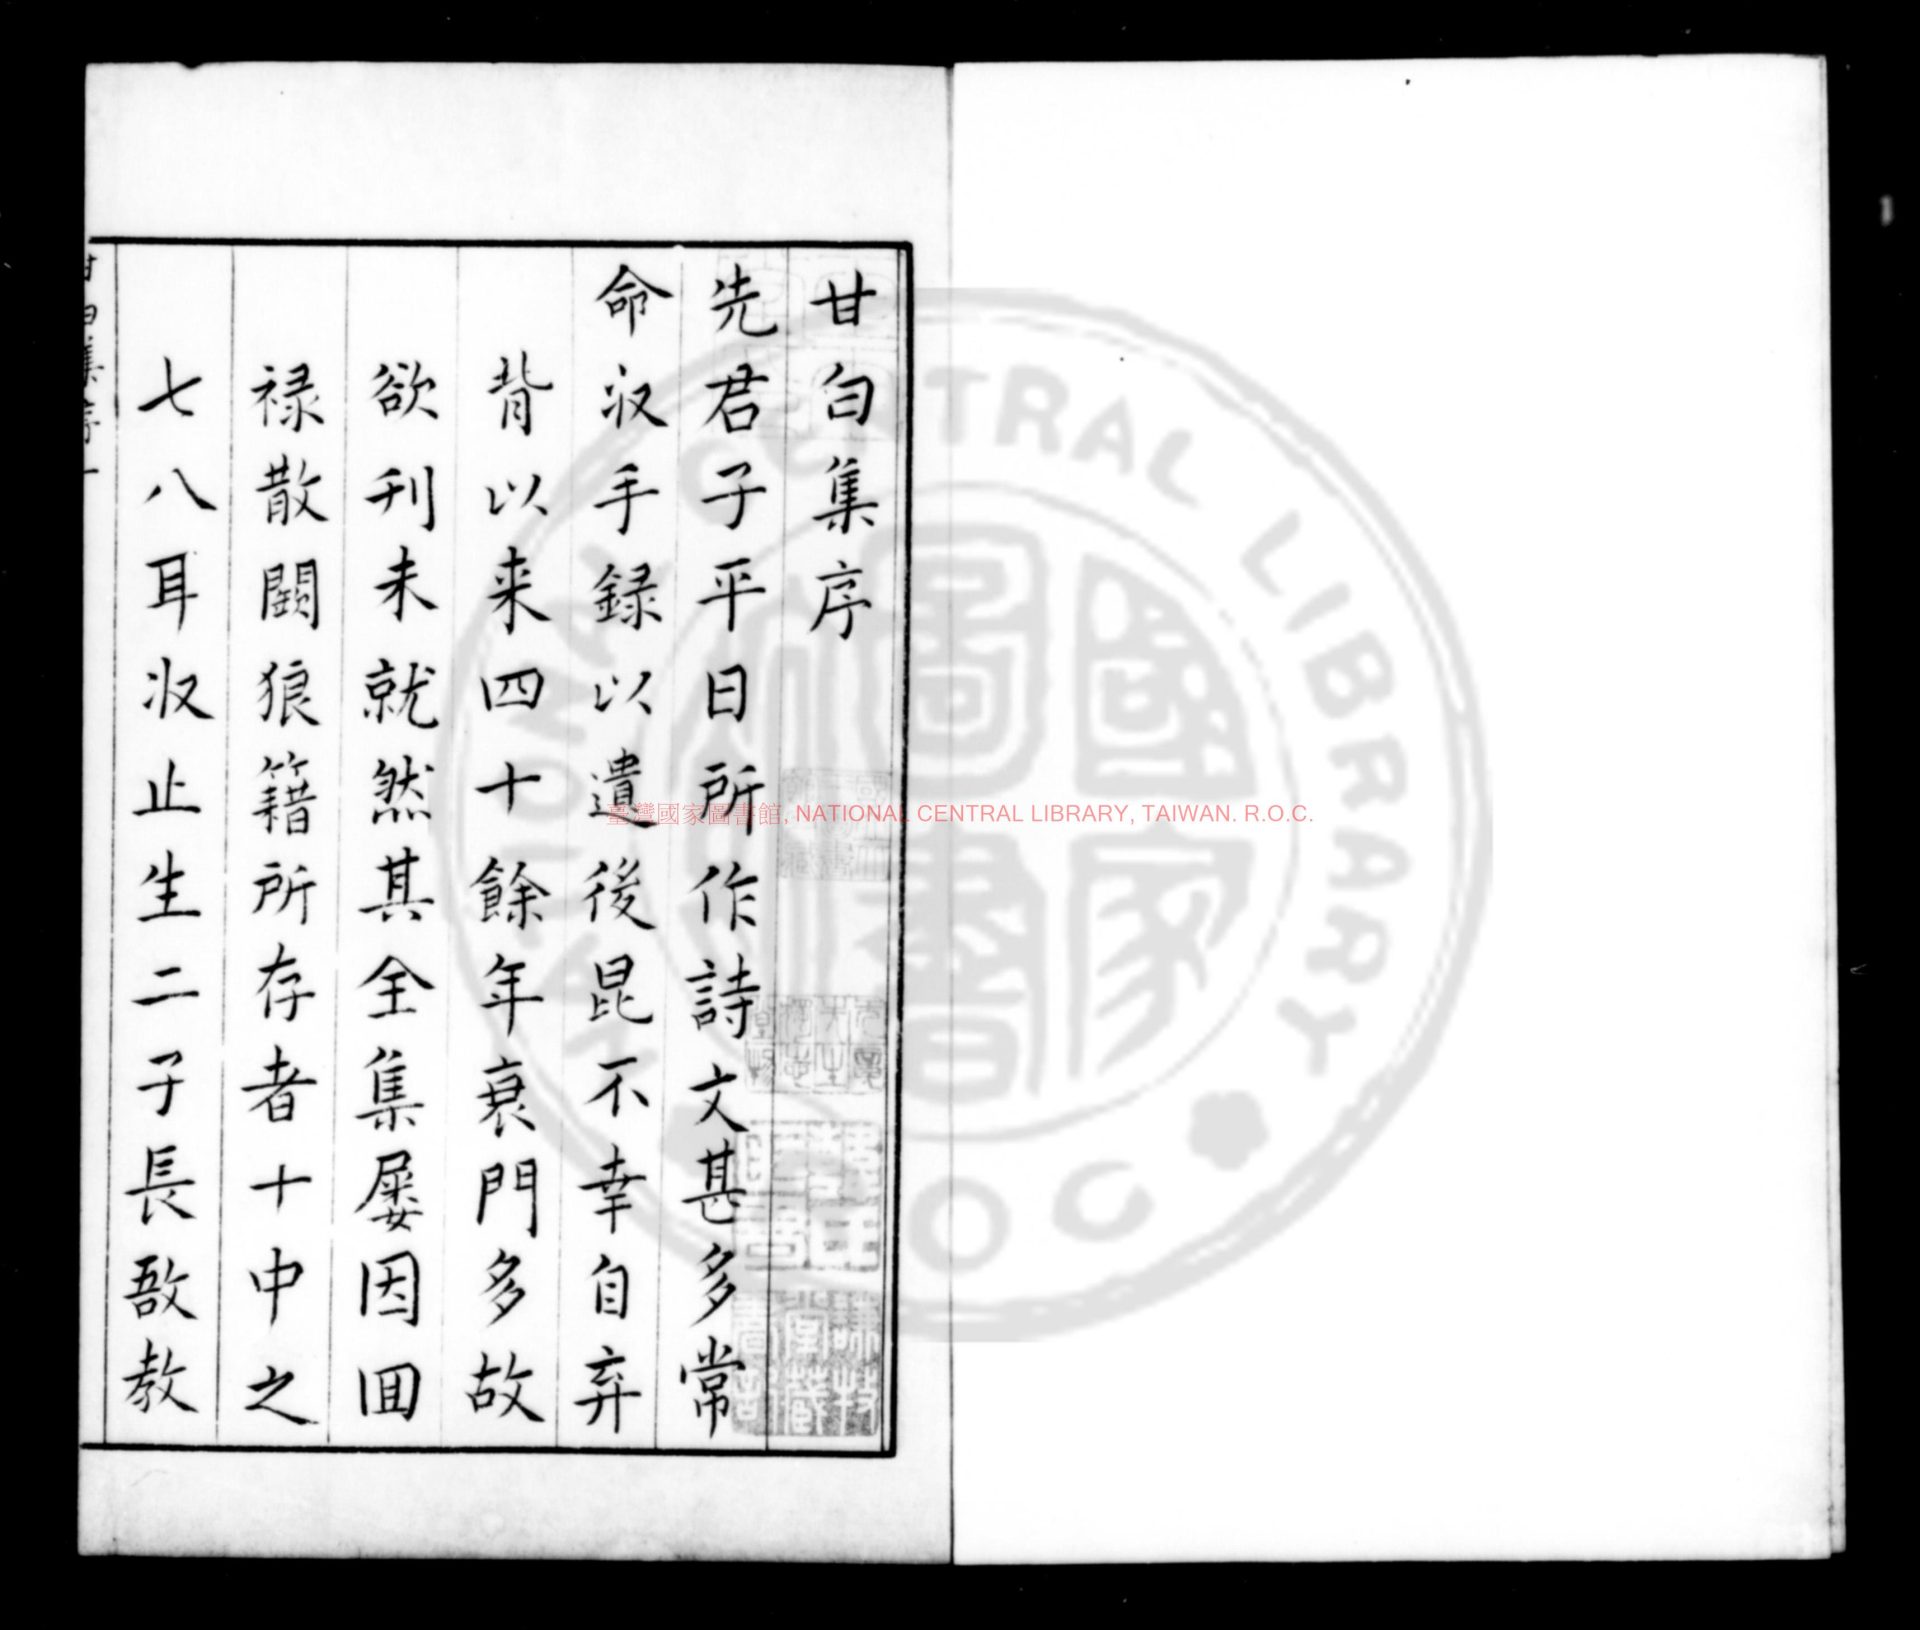 甘白集序
先君子平日所作詩文甚多常
命収手録以遺後昆不幸自弃
背以来四十餘年衰門多故
欲刊未就然其全集屢因囬
禄散闕狼籍所存者十中之
七八耳収止生二子長敔教
甘白集序 一
謙牧堂藏書記
臺灣國家圖書館, NATIONAL CENTRAL LIBRARY, TAIWAN. R.O.C.
NATIONAL CENTRAL LIBRARY
R.O.C.
國家圖書